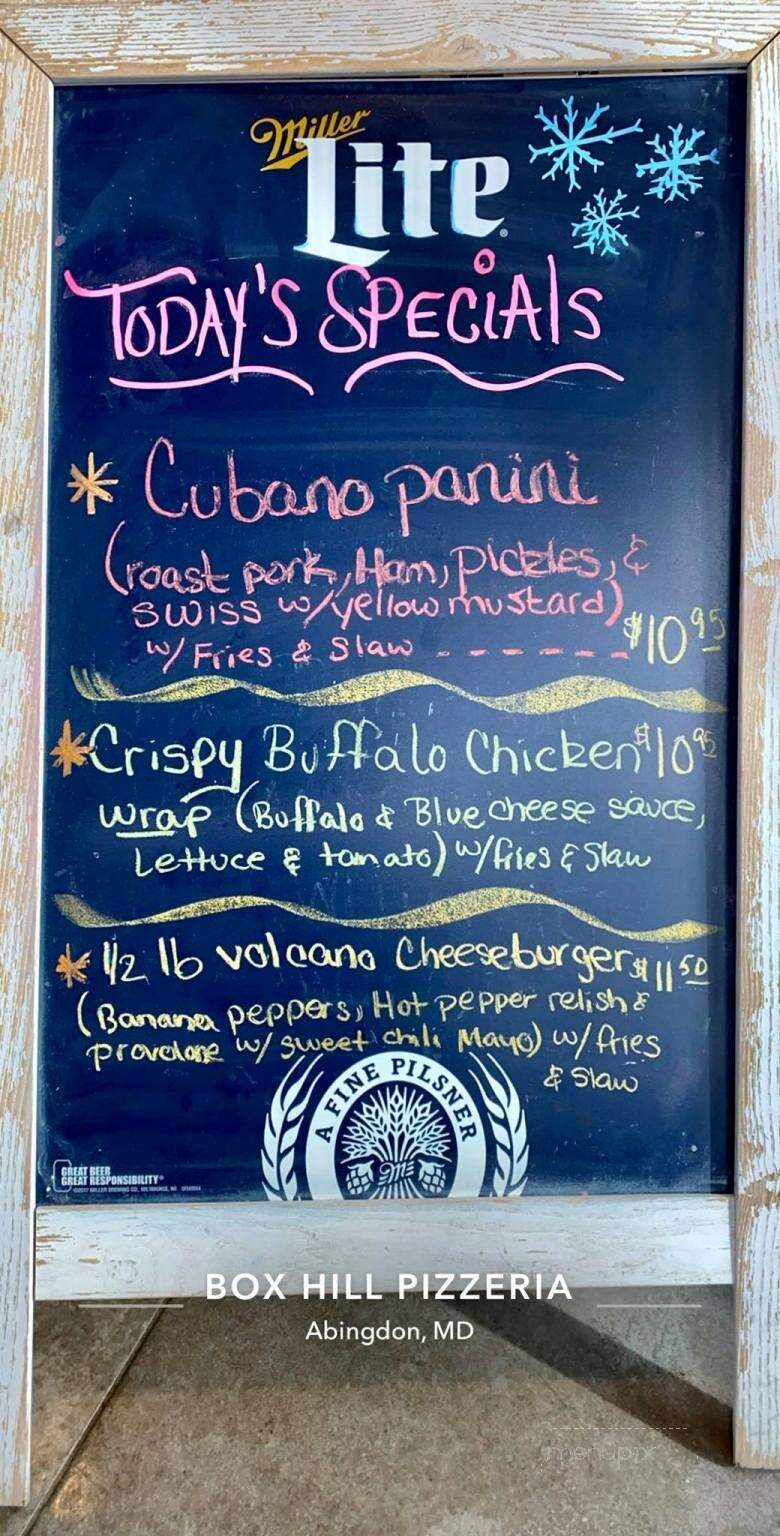 Miller
Lite
TODAY'S SPECiAls
* Cubano panini
(roast pork, Ham, pickles, &
swiss w/yellow mustard)
w/ Fries & Slaw - - - - - - $10 95
* Crispy Buffalo Chicken $10 95
wrap (Buffalo & Blue cheese sauce,
Lettuce & tomato) w/fries & Slaw
* 1/2 lb volcano Cheeseburger $11 50
(Banana peppers, Hot pepper relish &
provolone w/ sweet chili Mayo) w/ fries
& Slaw
A FINE PILSNER
GREAT BEER
GREAT RESPONSIBILITY®
©2017 MILLER BREWING CO., MILWAUKEE, WI
BOX HILL PIZZERIA
Abingdon, MD
menupix